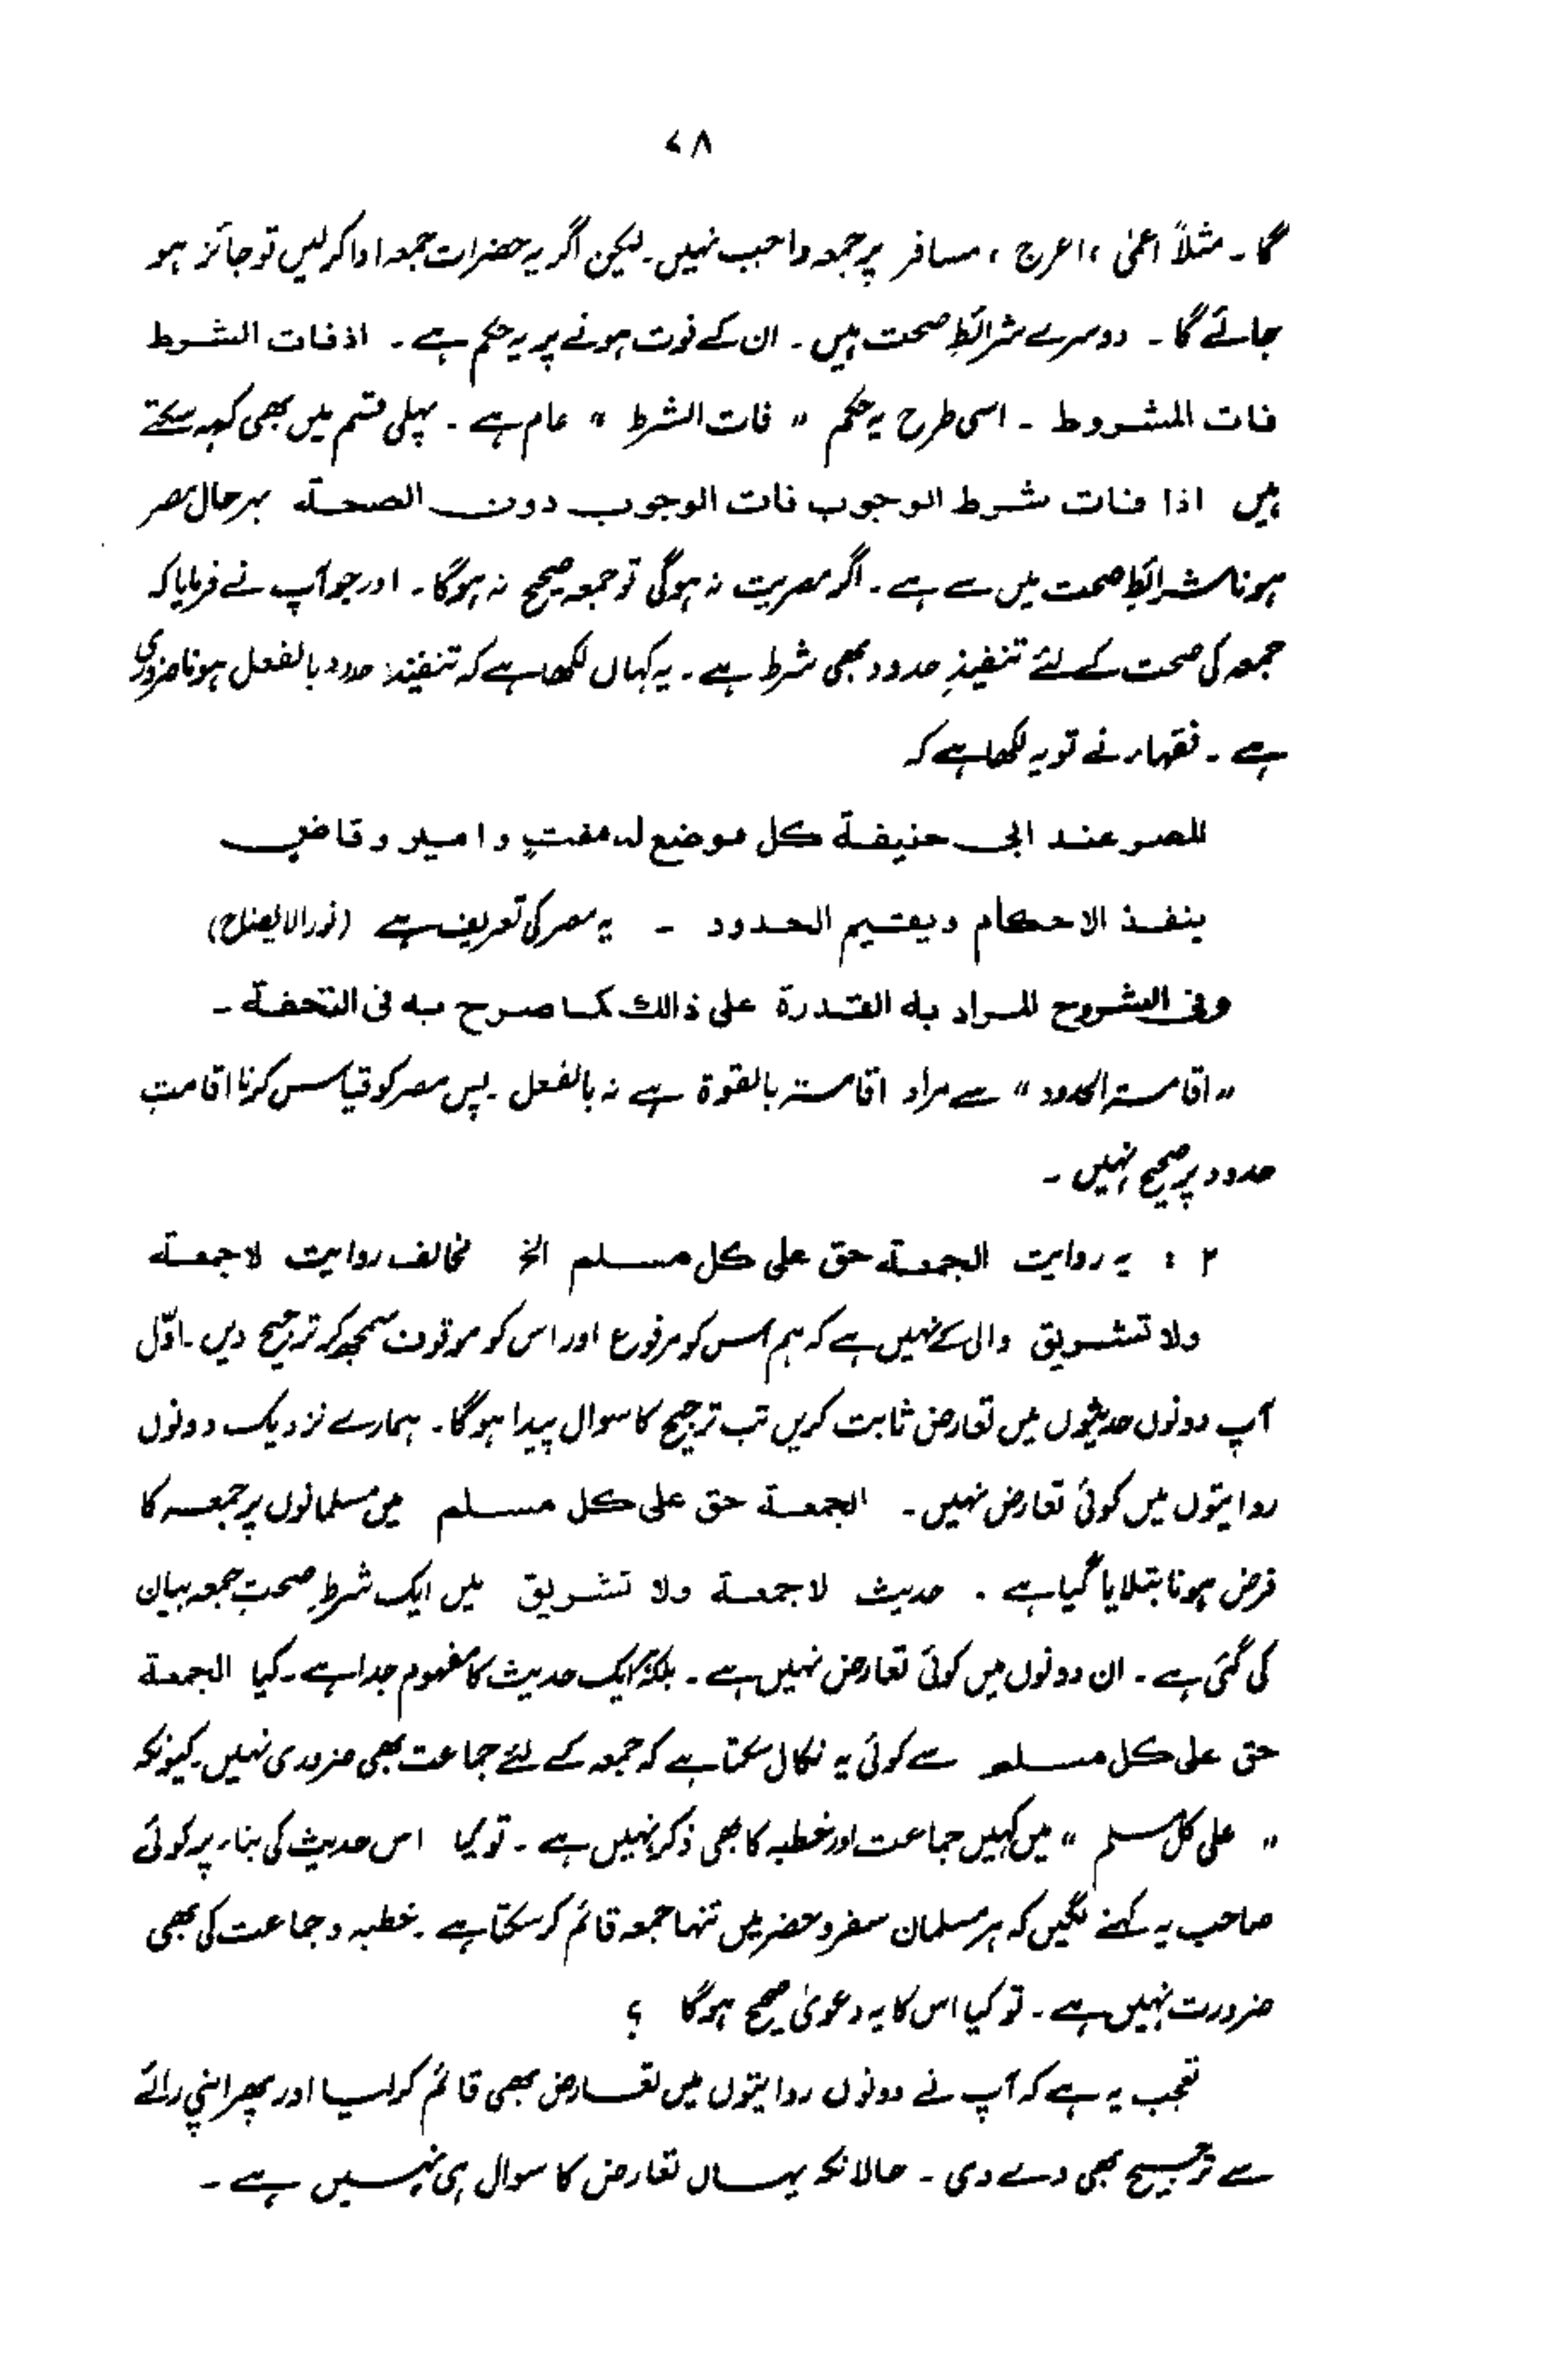 ۷۸
گا ۔ مثلاً اعمیٰ ، اعرج ، مسافر پر جمعہ واجب نہیں ۔ لیکن اگر یہ حضرات جمعہ ادا کرلیں تو جائز ہو
جائے گا ۔ دوسرے شرائطِ صحت ہیں ۔ ان کے فوت ہونے پر یہ حکم ہے ۔ اذ فات الشرط
فات المشروط ۔ اسی طرح یہ حکم " فات الشرط " عام ہے ۔ پہلی قسم میں بھی کہہ سکتے
ہیں اذا فات شرط الوجوب فات الوجوب دون الصحة بہرحال مصر
ہونا شرائطِ صحت میں سے ہے ۔ اگر مصریت نہ ہوگی تو جمعہ صحیح نہ ہوگا ۔ اور جو آپ نے فرمایا کہ
جمعہ کی صحت کے لئے تنفیذِ حدود بھی شرط ہے ۔ یہ کہاں لکھا ہے کہ تنفیذ حدود بالفعل ہونا ضروری
ہے ۔ فقہاء نے تو یہ لکھا ہے کہ
المصر عند ابی حنیفة کل موضع له مفتٍ و امیر و قاضی
ینفذ الاحکام ویقیم الحدود ۔ یہ مصر کی تعریف ہے (نور الایضاح)
وفی الشروح المراد به القدرة علی ذالك کما صرح به فی التحفة ۔
" اقامۃ الحدود " سے مراد اقامۃ بالقوۃ ہے نہ بالفعل ۔ پس مصر کو قیاس کرنا اقامتِ
حدود پر صحیح نہیں ۔
۲ : یہ روایت الجمعة حق علی کل مسلم الخ مخالف روایت لا جمعة
ولا تشریق والی کے نہیں ہے کہ ہم اس کو مرفوع اور اس کو موقوف سمجھ کر ترجیح دیں ۔ اوّل
آپ دونوں حدیثوں میں تعارض ثابت کریں تب ترجیح کا سوال پیدا ہوگا ۔ ہمارے نزدیک دونوں
روایتوں میں کوئی تعارض نہیں ۔ الجمعة حق علی کل مسلم میں مسلمانوں پر جمعہ کا
فرض ہونا بتلایا گیا ہے ۔ حدیث لا جمعة ولا تشریق میں ایک شرطِ صحتِ جمعہ بیان
کی گئی ہے ۔ ان دونوں میں کوئی تعارض نہیں ہے ۔ بلکہ ہر ایک حدیث کا مفہوم جدا ہے ۔ کیا الجمعة
حق علی کل مسلم سے کوئی یہ نکال سکتا ہے کہ جمعہ کے لئے جماعت بھی ضروری نہیں ۔ کیونکہ
" علی کل مسلم " میں کہیں جماعت اور خطبہ کا بھی ذکر نہیں ہے ۔ تو کیا اس حدیث کی بناء پر کوئی
صاحب یہ کہنے لگیں کہ ہر مسلمان سفر و حضر میں تنہا جمعہ قائم کرسکتا ہے ۔ خطبہ و جماعت کی بھی
ضرورت نہیں ہے ۔ تو کیا اس کا یہ دعویٰ صحیح ہوگا ؟
تعجب یہ ہے کہ آپ نے دونوں روایتوں میں تعارض بھی قائم کرلیا اور پھر اپنی رائے
سے ترجیح بھی دے دی ۔ حالانکہ یہاں تعارض کا سوال ہی نہیں ہے ۔